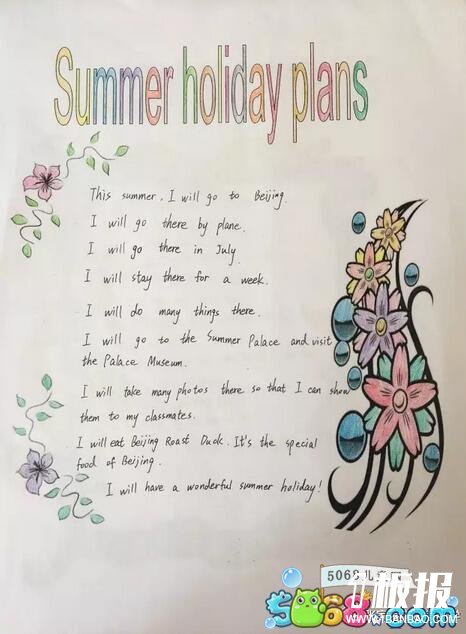 Summer holiday plans
This summer, I will go to Beijing.
I will go there by plane.
I will go there in July.
I will stay there for a week.
I will do many things there.
I will go to the Summer Palace and visit
the Palace Museum.
I will take many photos there so that I can show
them to my classmates.
I will eat Beijing Roast Duck. It's the special
food of Beijing.
I will have a wonderful summer holiday!
5068儿童
板报
5068.com
WWW.TBANBAO.COM